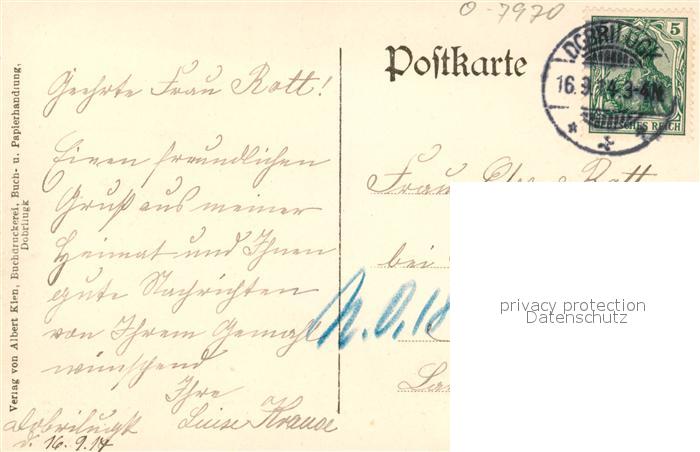 O-7970
DOBRILUGK
16.9.14.3-4N
5
DEUTSCHES REICH
Postkarte
Geehrte Frau Rott!
Einen freundlichen
Gruß aus meiner
Heimat und Ihnen
gute Nachrichten
von Ihrem Gemahl
wünschend
Ihre
Luise Krause
Dobrilugk
d. 16.9.14
Frau Rott
bei
N.O.18
privacy protection
Datenschutz
Verlag von Albert Klen, Buchdruckerei, Buch- u. Papierhandlung,
Dobrilugk